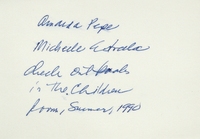 Amanda Pepe
Michele
check out books
in the Children
room, Summer, 1990